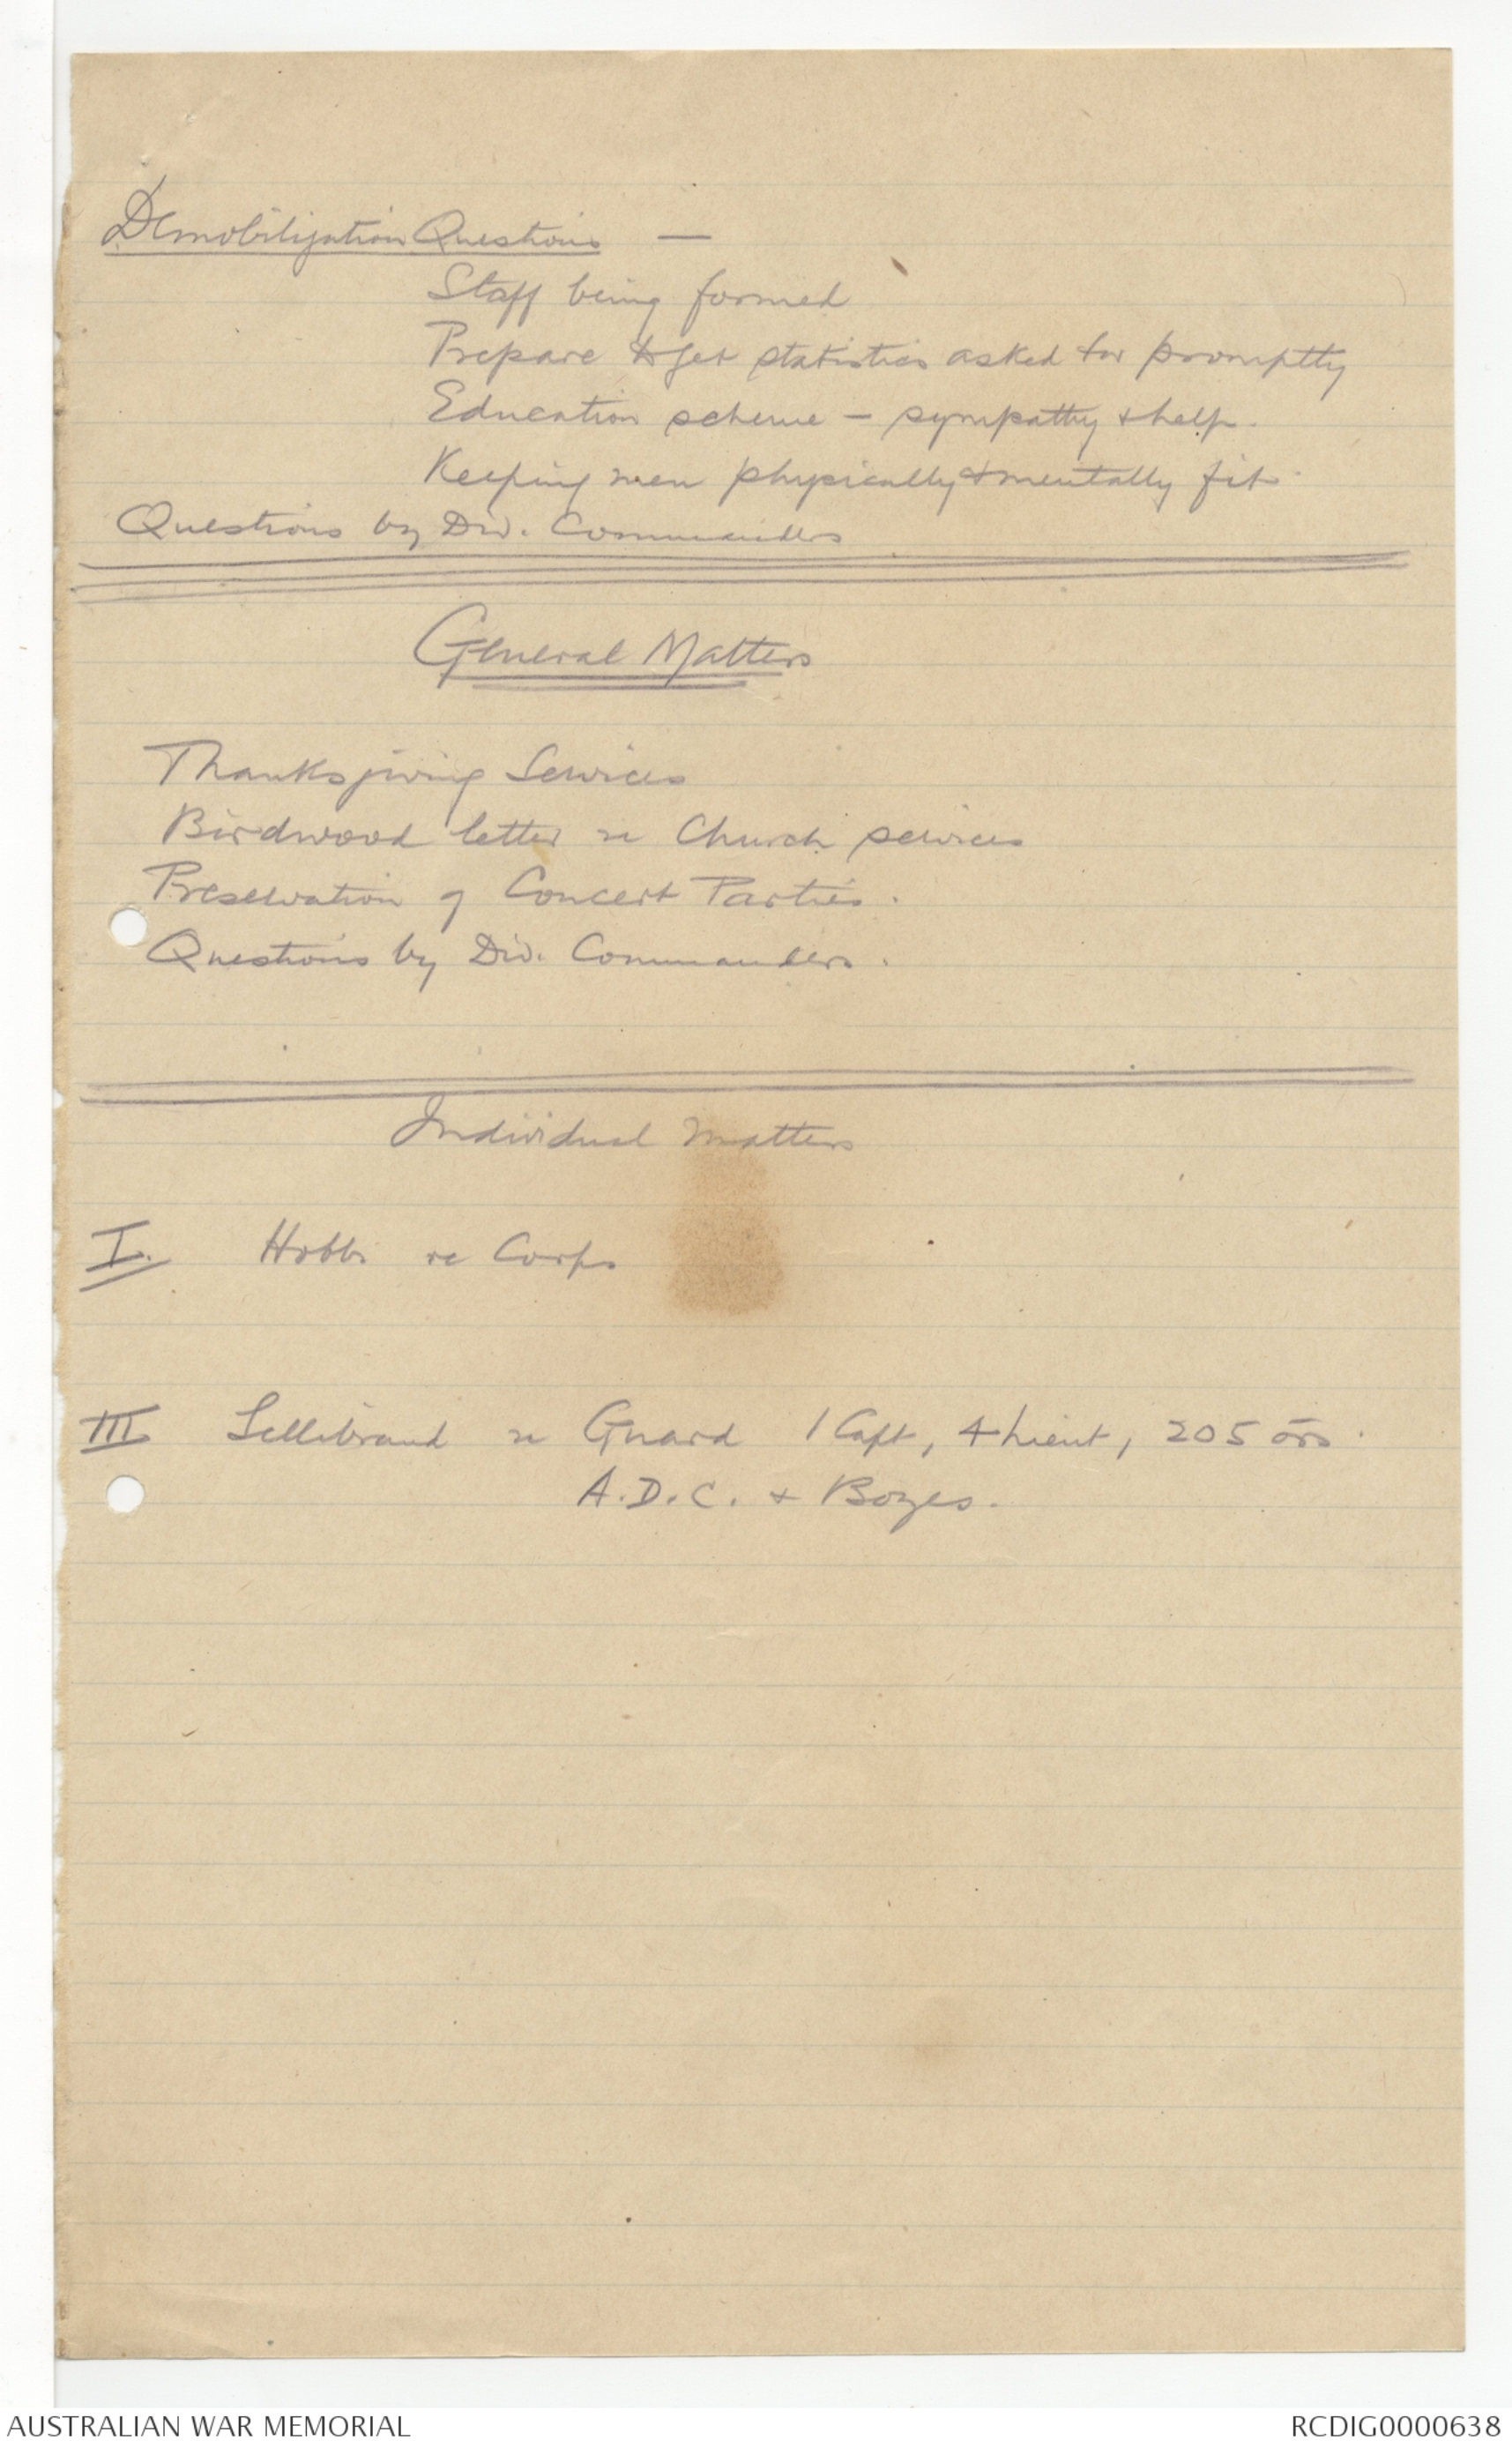 Demobilization Questions —
Staff being formed
Prepare to get statistics asked for promptly
Education scheme – sympathy & help.
Keeping men physically & mentally fit.
Questions by Div. Commanders
General Matters
Thanksgiving Services
Birdwood letter re Church services
Preservation of Concert Parties.
Questions by Div. Commanders.
Individual Matters
I. Hobbs re Corps
III Gellibrand re Guard 1 Capt, 4 Lieut, 205 ors.
A.D.C. &
AUSTRALIAN WAR MEMORIAL
RCDIG0000638